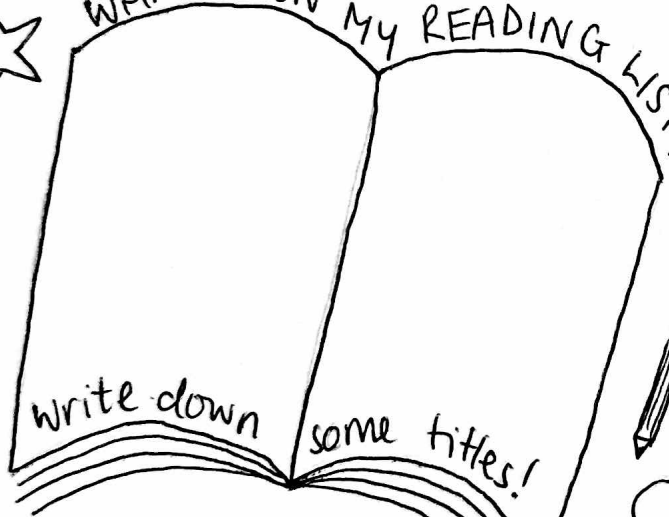 ON MY READING LIST
write down some titles!